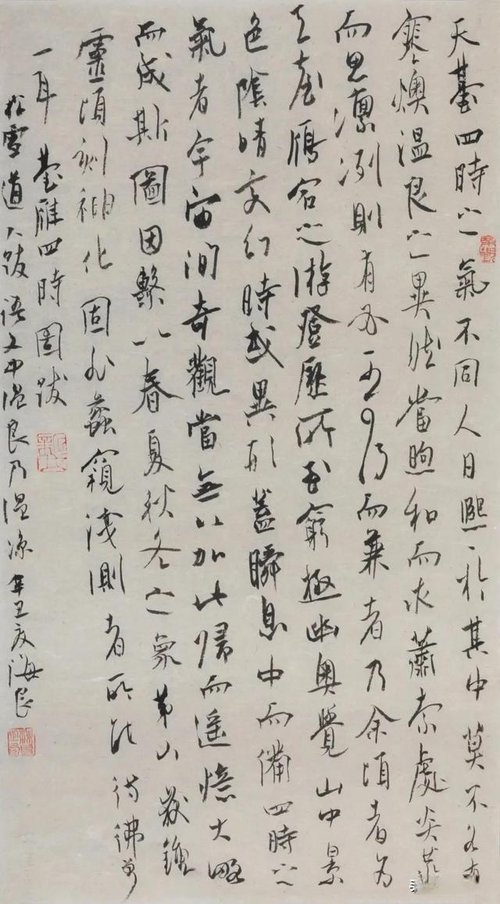 天臺四時之氣不同人日熙於其中莫不各有
寒燠溫良之異然當煦和而求蕭索處炎蒸
而思凜冽則有必不可得而兼者乃余頃者為
天台雁宕之游登歷所至窮極幽奧覺山中景
色陰晴變幻時或異形蓋瞬息中而備四時之
氣者宇宙間奇觀當無以加此歸而遙憶大略
而成斯圖因繫以春夏秋冬之象第山嶽鍾
靈頃刻神化固非蠡窺淺測者所能彷彿萬
一耳 臺雁四時圖跋
松雪道人跋語文中溫良乃溫涼 辛丑夏海良